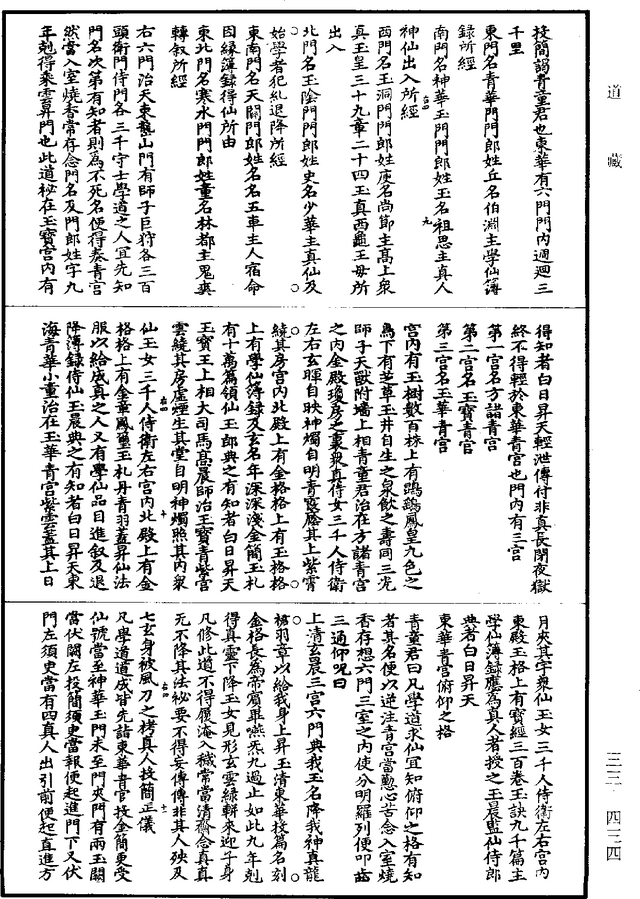 道藏
三三·四三四
校簡謁青童君也東華有六門門內週迴三
千里
東門名青華門門郎姓丘名伯淵主學仙簿
錄所經
南門名神華玉門門郎姓玉名祖思主真人
神仙出入所經
西門名玉洞門門郎姓庚名尚節主高上衆
真玉皇三十九章二十四玉真西龜王母所
出入
北門名玉陰門門郎姓史名少華主真仙及
始學者犯糺退降所經
東南門名天關門郎姓名名五車主人宿命
因緣簿錄得仙所由
東北門名寒水門門郎姓童名林都主鬼爽
轉叙所經
右六門治天東鼇山門有師子巨狩各三百
頭衛門侍門各三千守士學道之人宜先知
門名次第有知者則為不死名便得奏青宮
然當入室燒香常存念門名及門郎姓字九
年剋得乘雲昇門也此道祕在玉寶宮內有
得知者白日昇天輕泄傳付非真長閉夜獄
終不得輕於東華青宮也門內有三宮
第一宮名方諸青宮
第二宮名玉寶青宮
第三宮名玉華青宮
宮內有玉樹數百株上有鸑鷟鳳皇九色之
鳥下有芝草玉井自生之泉飲之壽同三光
師子天獸附墻上相青童君治在方諸青宮
之內金殿瓊房之裏衆真侍女三千人侍衛
左右玄暉自映神燭自明青霞蔭其上紫霄
繞其房宮內北殿上有金格格上有玉格格
上有學仙簿錄及玄名年深深淺金簡玉札
有十萬篇領仙玉郎典之有知者白日昇天
玉寶王上相大司馬高晨師治玉寶青紫宮
雲繞其房虛煙生其堂自明神燭照其內衆
仙玉女三千人侍衛左右宮內北殿上有金
格格上有金章鳳璽玉札丹青羽蓋昇仙法
服以給成真之人又有學仙品目進叙及退
降簿錄侍仙玉晨典之有知者白日昇天東
海青華小童治在玉華青宮紫雲蓋其上日
月夾其宇衆仙玉女三千人侍衛左右宮內
東殿玉格上有寶經三百卷玉訣九千篇主
學仙簿錄應為真人者授之玉晨監仙侍郎
典者白日昇天
東華青宮俯仰之格
青童君曰凡學道求仙宜知俯仰之格有知
者其名便以逆注青宮當懃心苦念入室燒
香存想六門三室之內使分明羅列便叩齒
三通仰呪曰
上清玄晨三宮六門典我玉名降我神真龍
裙羽章以給我身上昇玉清東華校篇名刻
金格長為帝賓畢嚥炁九過止如此九年剋
得真靈下降玉女見形玄雲綠軿來迎子身
凡修此道不得履淹入穢常當清齋念真真
无不降其法祕要不得妄傳傳非其人殃及
七玄身被風刀之栲真人校簡正儀
凡學道道成皆先詣東華青宮投金簡更受
仙號當至神華玉門未至門夾門有兩玉闕
當伏闕左投簡須臾當報便起進門下又伏
門左須臾當有四真人出引前便起直進方